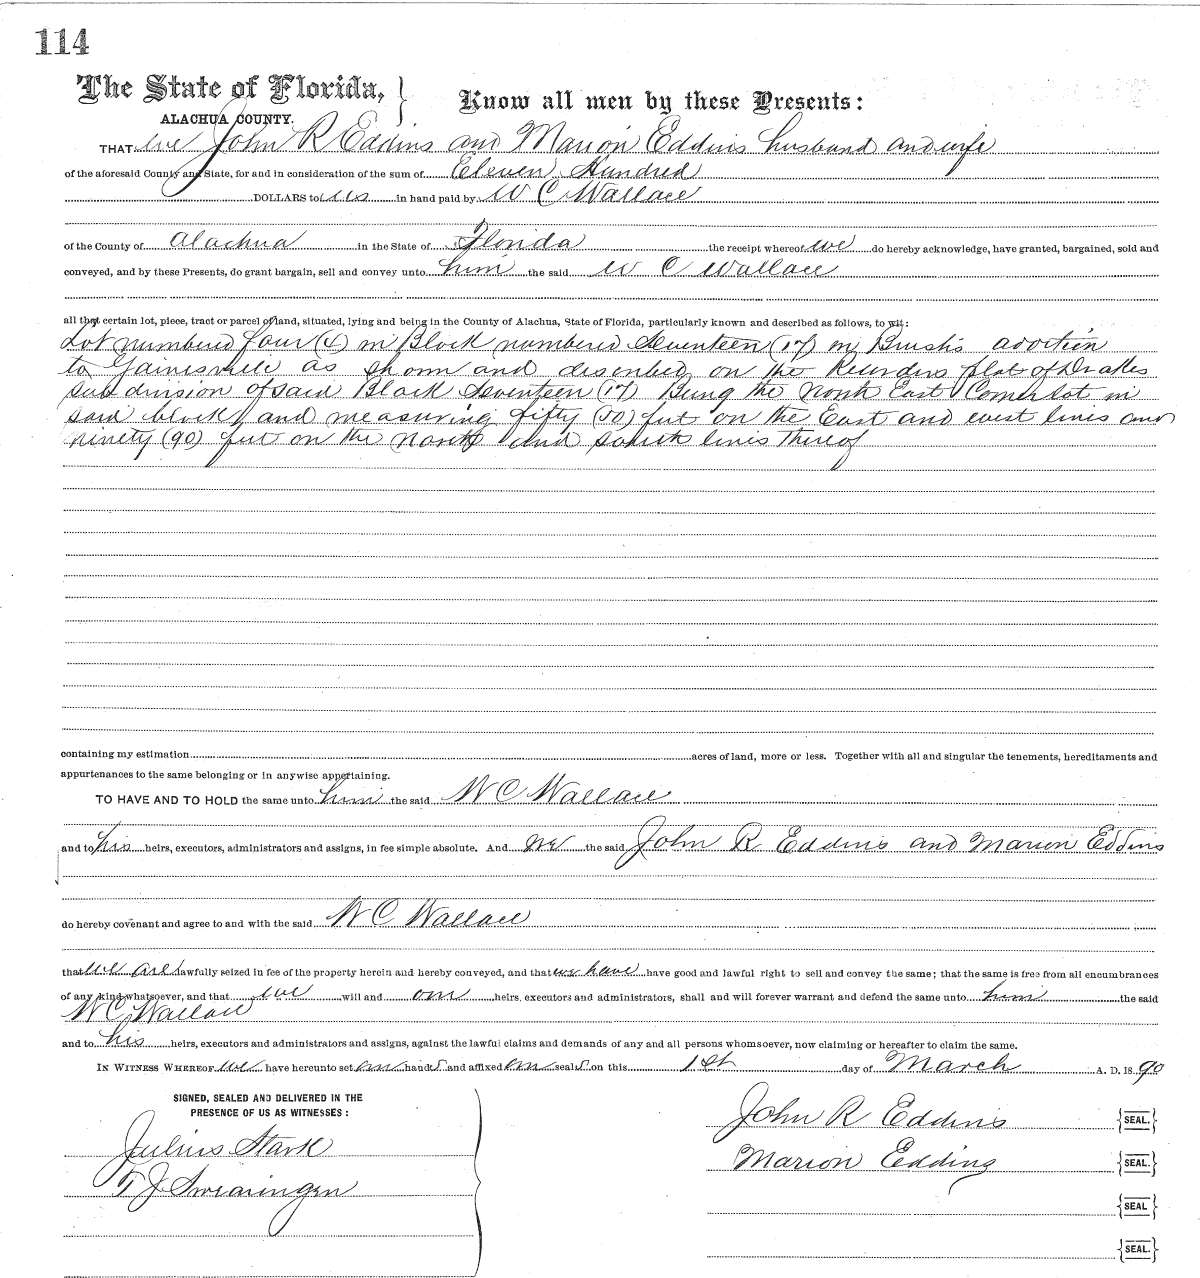 114
The State of Florida, } Know all men by these Presents:
ALACHUA COUNTY.
THAT we John R Eddins and Marion Eddins husband and wife
of the aforesaid County and State, for and in consideration of the sum of Eleven Hundred
DOLLARS to us in hand paid by W C Wallace
of the County of Alachua in the State of Florida the receipt whereof we do hereby acknowledge, have granted, bargained, sold and
conveyed, and by these Presents, do grant bargain, sell and convey unto him the said W C Wallace
all that certain lot, piece, tract or parcel of land, situated, lying and being in the County of Alachua, State of Florida, particularly known and described as follows, to wit:
Lot numbered four (4) in Block numbered Seventeen (17) in Brush's addition
to Gainesville as shown and described on the Recorders plat of Drakes
subdivision of said Block Seventeen (17) Being the North East Corner lot in
said block and measuring fifty (50) feet on the East and west lines and
ninety (90) feet on the North and South lines thereof
containing my estimation acres of land, more or less. Together with all and singular the tenements, hereditaments and
appurtenances to the same belonging or in anywise appertaining.
TO HAVE AND TO HOLD the same unto him the said W C Wallace
and to his heirs, executors, administrators and assigns, in fee simple absolute. And we the said John R Eddins and Marion Eddins
do hereby covenant and agree to and with the said W C Wallace
that we are lawfully seized in fee of the property herein and hereby conveyed, and that we have have good and lawful right to sell and convey the same; that the same is free from all encumbrances
of any kind whatsoever, and that we will and our heirs, executors and administrators, shall and will forever warrant and defend the same unto him the said
W C Wallace
and to his heirs, executors and administrators and assigns, against the lawful claims and demands of any and all persons whomsoever, now claiming or hereafter to claim the same.
IN WITNESS WHEREOF we have hereunto set our hands and affixed our seals on this 1st day of March A. D. 1890
SIGNED, SEALED AND DELIVERED IN THE
PRESENCE OF US AS WITNESSES:
John R Eddins {SEAL.}
Julius Stark
Marion Eddins {SEAL.}
T J Swearingen
{SEAL}
{SEAL.}